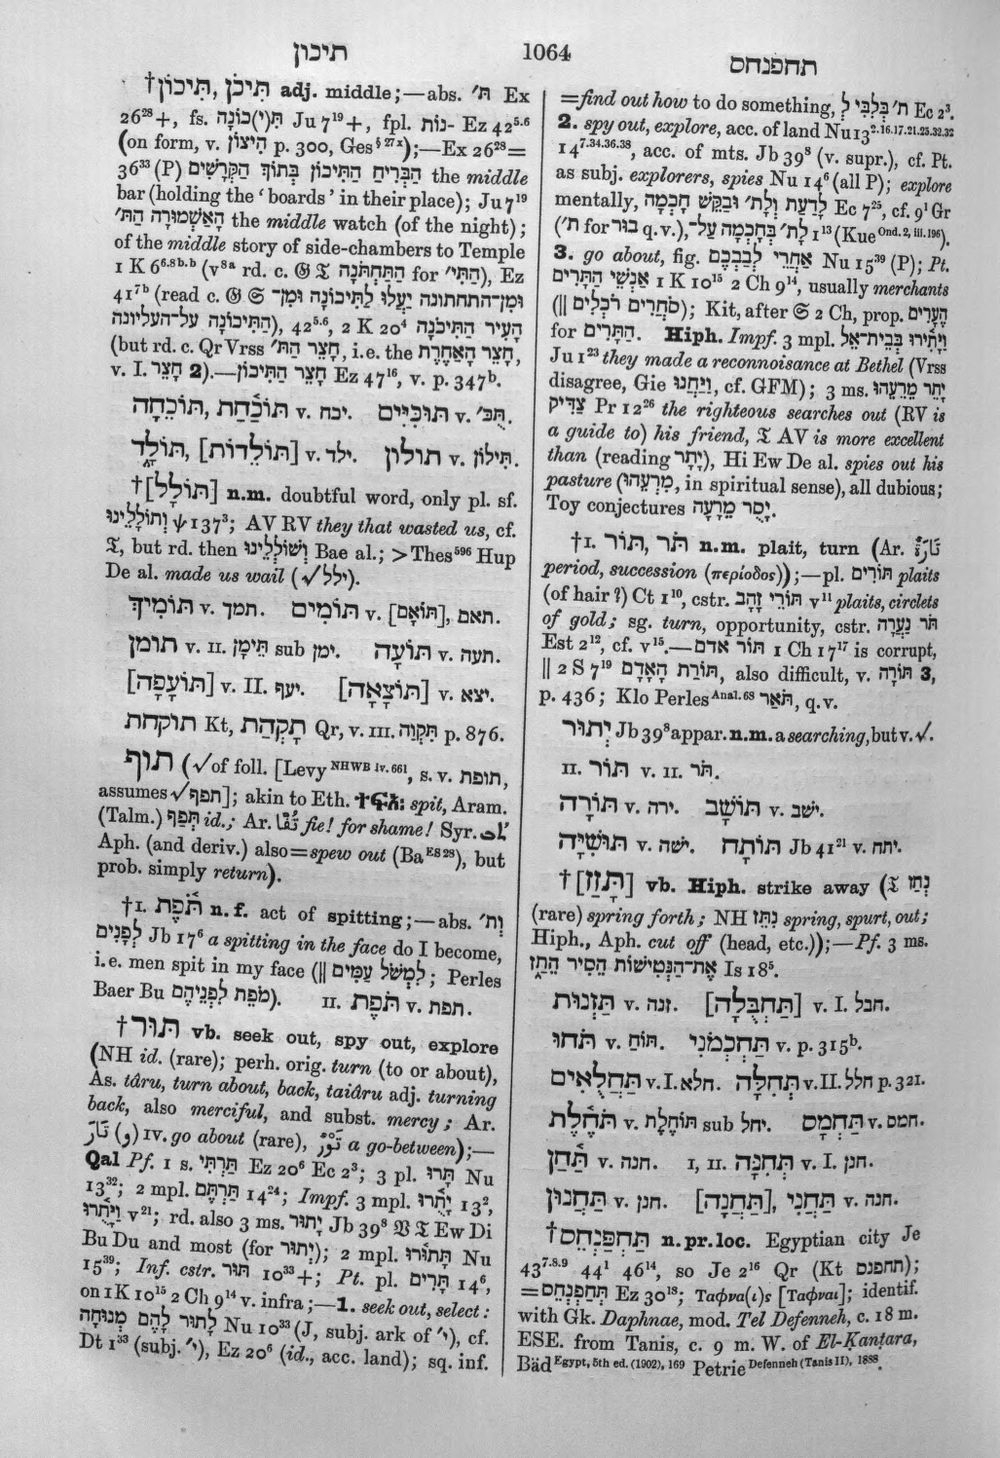 תיכון
1064
תחפנחס
†תִּיכוֹן, תִּיכֹן adj. middle;—abs. ת׳ Ex
26²⁸+, fs. תִּ(י)כוֹנָה Ju 7¹⁹+, fpl. נוֹת- Ez 42⁵·⁶
(on form, v. חִיצוֹן p. 300, Ges § ²⁷ ˣ);—Ex 26²⁸=
36³³ (P) הַבְּרִיחַ הַתִּיכוֹן בְּתוֹךְ הַקְּרָשִׁים the middle
bar (holding the ‘boards’ in their place); Ju 7¹⁹
הָאַשְׁמוּרָה הַתּ׳ the middle watch (of the night);
of the middle story of side-chambers to Temple
1 K 6⁶·⁸ᵇ·ᵇ (v⁸ᵃ rd. c. 𝔊 𝔗 הַתַּחְתֹּנָה for הַתִּי׳), Ez
41⁷ᵇ (read c. 𝔊 𝔖 וּמִן־הַתחתונה יַעֲלוּ לַתִּיכוֹנָה וּמִן־
הַתִּיכוֹנָה על־העליונה), 42⁵·⁶, 2 K 20⁴ הָעִיר הַתִּיכֹנָה
(but rd. c. Qr Vrss חָצֵר הַתּ׳, i.e. the חָצֵר הָאַחֶרֶת,
v. I. חָצֵר 2).—חָצֵר הַתִּיכוֹן Ez 47¹⁶, v. p. 347ᵇ.
תּוֹכַחַת, תּוֹכֵחָה v. יכח. תּוּכִּיִּים v. תֻּכּ׳.
תּוֹלָד, [תּוֹלֵדוֹת] v. ילד. תולון v. תִּילוֹן.
†[תּוֹלָל] n.m. doubtful word, only pl. sf.
וְתוֹלָלֵינוּ ψ 137³; AV RV they that wasted us, cf.
𝔗, but rd. then וְשׁוֹלְלֵינוּ Bae al.; > Thes⁵⁹⁶ Hup
De al. made us wail (√ילל).
תּוֹמִיךְ v. תמך. תּוֹמִים v. [תּוֹאָם], תאם.
תומן v. II. תֵּימָן sub ימן. תּוֹעָה v. תעה.
[תּוֹעָפָה] v. II. יעף. [תּוֹצָאָה] v. יצא.
תוקחת Kt, תָּקְהַת Qr, v. III. תִּקְוָה p. 876.
תוף (√of foll. [Levy ᴺᴴᵂᴮ ⁱᵛ·⁶⁶¹, s. v. תופת,
assumes √תפף]; akin to Eth. spit, Aram.
(Talm.) תְּפַף id.; Ar. fie! for shame! Syr.
Aph. (and deriv.) also = spew out (Ba ᴱˢ ²⁸), but
prob. simply return).
†I. תֹּפֶת n. f. act of spitting;—abs. וְת׳
לְפָנִים Jb 17⁶ a spitting in the face do I become,
i.e. men spit in my face (|| לִמְשֹׁל עַמִּים; Perles
Baer Bu מֹפֵת לִפְנֵיהֶם). II. תֹּפֶת v. תפת.
†תּוּר vb. seek out, spy out, explore
(NH id. (rare); perh. orig. turn (to or about),
As. târu, turn about, back, taiâru adj. turning
back, also merciful, and subst. mercy; Ar.
تَارَ (و) IV. go about (rare), تَوْرٌ a go-between);—
Qal Pf. 1 s. תַּרְתִּי Ez 20⁶ Ec 2³; 3 pl. תָּרוּ Nu
13³²; 2 mpl. תַּרְתֶּם 14³⁴; Impf. 3 mpl. יָתֻרוּ 13²,
וַיָּתֻרוּ v²¹; rd. also 3 ms. יָתוּר Jb 39⁸ 𝔙 𝔗 Ew Di
Bu Du and most (for יְתוּר); 2 mpl. תָּתוּרוּ Nu
15³⁹; Inf. cstr. תּוּר 10³³+; Pt. pl. תָּרִים 14⁶,
on 1 K 10¹⁵ 2 Ch 9¹⁴ v. infra;—1. seek out, select:
לָתוּר לָהֶם מְנוּחָה Nu 10³³ (J, subj. ark of י׳), cf.
Dt 1³³ (subj. י׳), Ez 20⁶ (id., acc. land); sq. inf.
=find out how to do something, ת׳ בְּלִבִּי לְ Ec 2³.
2. spy out, explore, acc. of land Nu 13²·¹⁶·¹⁷·²¹·²⁵·³²·³²
14⁷·³⁴·³⁶·³⁸, acc. of mts. Jb 39⁸ (v. supr.), cf. Pt.
as subj. explorers, spies Nu 14⁶ (all P); explore
mentally, לָדַעַת וְלָת׳ וּבַקֵּשׁ חָכְמָה Ec 7²⁵, cf. 9¹ Gr
(ת׳ for בור q.v.), לָת׳ בְּחָכְמָה עַל־ 1¹³ (Kue ᴼⁿᵈ· ², ⁱⁱⁱ· ¹⁹⁶).
3. go about, fig. אַחֲרֵי לְבַבְכֶם Nu 15³⁹ (P); Pt.
אַנְשֵׁי הַתָּרִים 1 K 10¹⁵ 2 Ch 9¹⁴, usually merchants
(|| סֹחֲרִים רֹכְלִים); Kit, after 𝔖 2 Ch, prop. הֶעָרִים
for הַתָּרִים. Hiph. Impf. 3 mpl. וַיָּתִירוּ בְּבֵית־אֵל
Ju 1²³ they made a reconnoisance at Bethel (Vrss
disagree, Gie וַיַּחֲנוּ, cf. GFM); 3 ms. יָתֵר מֵרֵעֵהוּ
צַדִּיק Pr 12²⁶ the righteous searches out (RV is
a guide to) his friend, 𝔗 AV is more excellent
than (reading יֶתֶר), Hi Ew De al. spies out his
pasture (מִרְעֵהוּ, in spiritual sense), all dubious;
Toy conjectures יָסֻר מֵרָעָה.
†I. תֹּר, תּוֹר n.m. plait, turn (Ar. تَارَةٌ
period, succession (περίοδος));—pl. תּוֹרִים plaits
(of hair?) Ct 1¹⁰, cstr. תּוֹרֵי זָהָב v¹¹ plaits, circlets
of gold; sg. turn, opportunity, cstr. תֹּר נַעֲרָה
Est 2¹², cf. v¹⁵.—תּוֹר אדם 1 Ch 17¹⁷ is corrupt,
|| 2 S 7¹⁹ תּוֹרַת הָאָדָם, also difficult, v. תּוֹרָה 3,
p. 436; Klo Perles ᴬⁿᵃˡ· ⁶⁸ תֹּאַר, q.v.
יְתוּר Jb 39⁸ appar. n.m. a searching, but v. √.
II. תּוֹר v. II. תֹּר.
תּוֹרָה v. ירה. תּוֹשָׁב v. ישב.
תּוּשִׁיָּה v. ישה. תּוֹתָח Jb 41²¹ v. יתח.
†[תָּזַז] vb. Hiph. strike away (𝔗 נְתַז
(rare) spring forth; NH נִתַּז spring, spurt, out;
Hiph., Aph. cut off (head, etc.));—Pf. 3 ms.
אֶת־הַנְּטִישׁוֹת הֵסִיר הֵתַז Is 18⁵.
תַּזְנוּת v. זנה. [תַּחְבֻּלָה] v. I. חבל.
תֹּחוּ v. תּוֹחַ. תַּחְכְּמֹנִי v. p. 315ᵇ.
תַּחֲלֻאִים v. I. חלא. תְּחִלָּה v. II. חלל p. 321.
תֹּחֶלֶת v. תּוֹחֶלֶת sub יחל. תַּחְמָס v. חמס.
תַּחַן v. חנה. I, II. תְּחִנָּה v. I. חנן.
תַּחֲנוּן v. חנן. תַּחֲנִי, [תַּחֲנָה] v. חנה.
†תַּחְפַּנְחֵס n. pr. loc. Egyptian city Je
43⁷·⁸·⁹ 44¹ 46¹⁴, so Je 2¹⁶ Qr (Kt תחפנס);
=תְּחַפְנְחֵס Ez 30¹⁸; Ταφνα(ι)ς [Ταφναι]; identif.
with Gk. Daphnae, mod. Tel Defenneh, c. 18 m.
ESE. from Tanis, c. 9 m. W. of El-Kanṭara,
Bäd ᴱᵍʸᵖᵗ, ⁵ᵗʰ ᵉᵈ· ⁽¹⁹⁰²⁾, ¹⁶⁹ Petrie ᴰᵉᶠᵉⁿⁿᵉʰ ⁽ᵀᵃⁿⁱˢ ᴵᴵ⁾, ¹⁸⁸⁸.